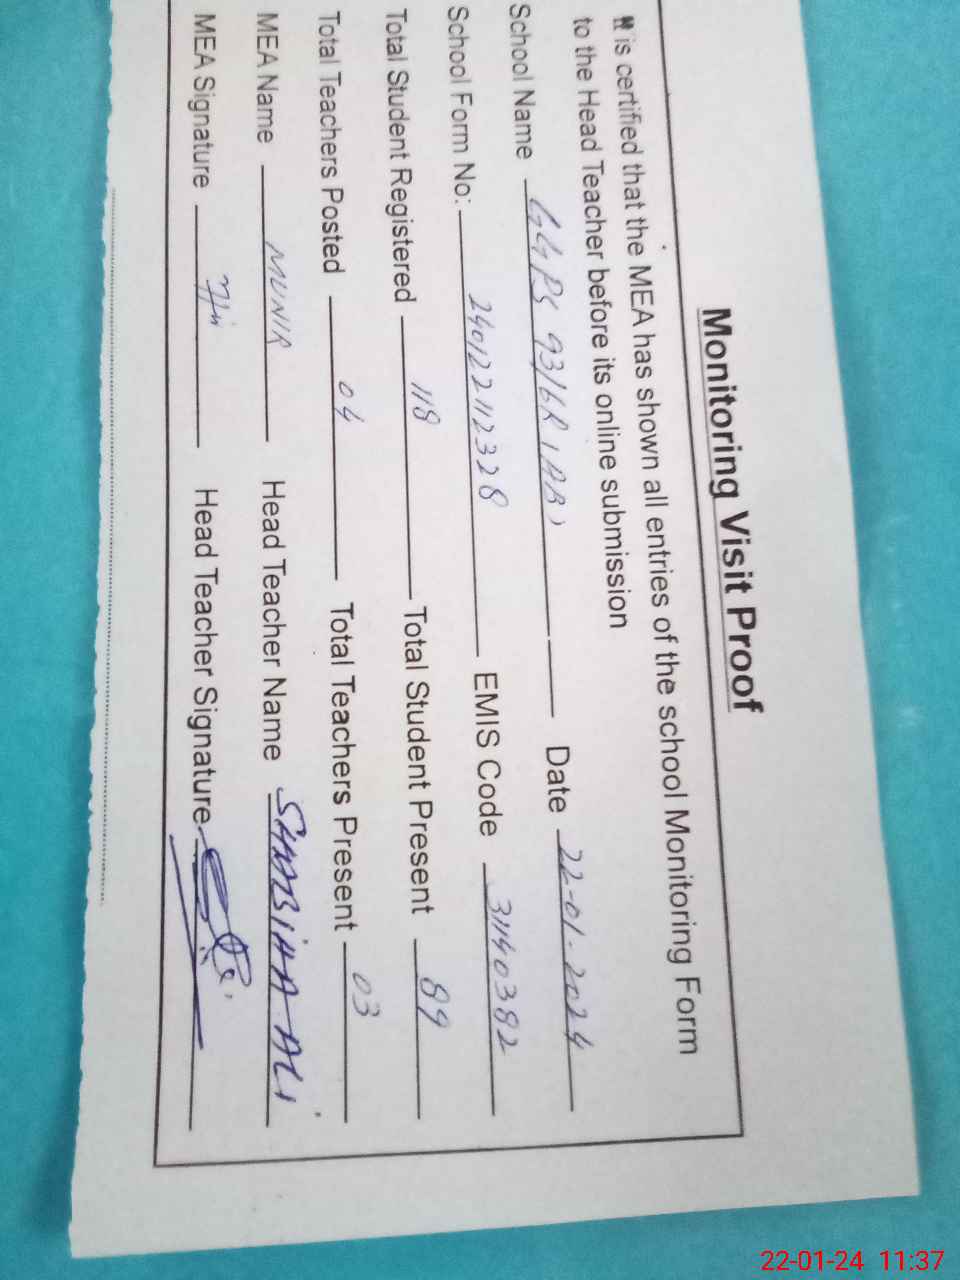 Monitoring Visit Proof
It is certified that the MEA has shown all entries of the school Monitoring Form
to the Head Teacher before its online submission
School Name GGPS 93/6R (AB) Date 22-01-2024
School Form No: 240122112328 EMIS Code 31140382
Total Student Registered 118 Total Student Present 89
Total Teachers Posted 04 Total Teachers Present 03
MEA Name MUNIR Head Teacher Name ALI
MEA Signature Head Teacher Signature
22-01-24 11:37